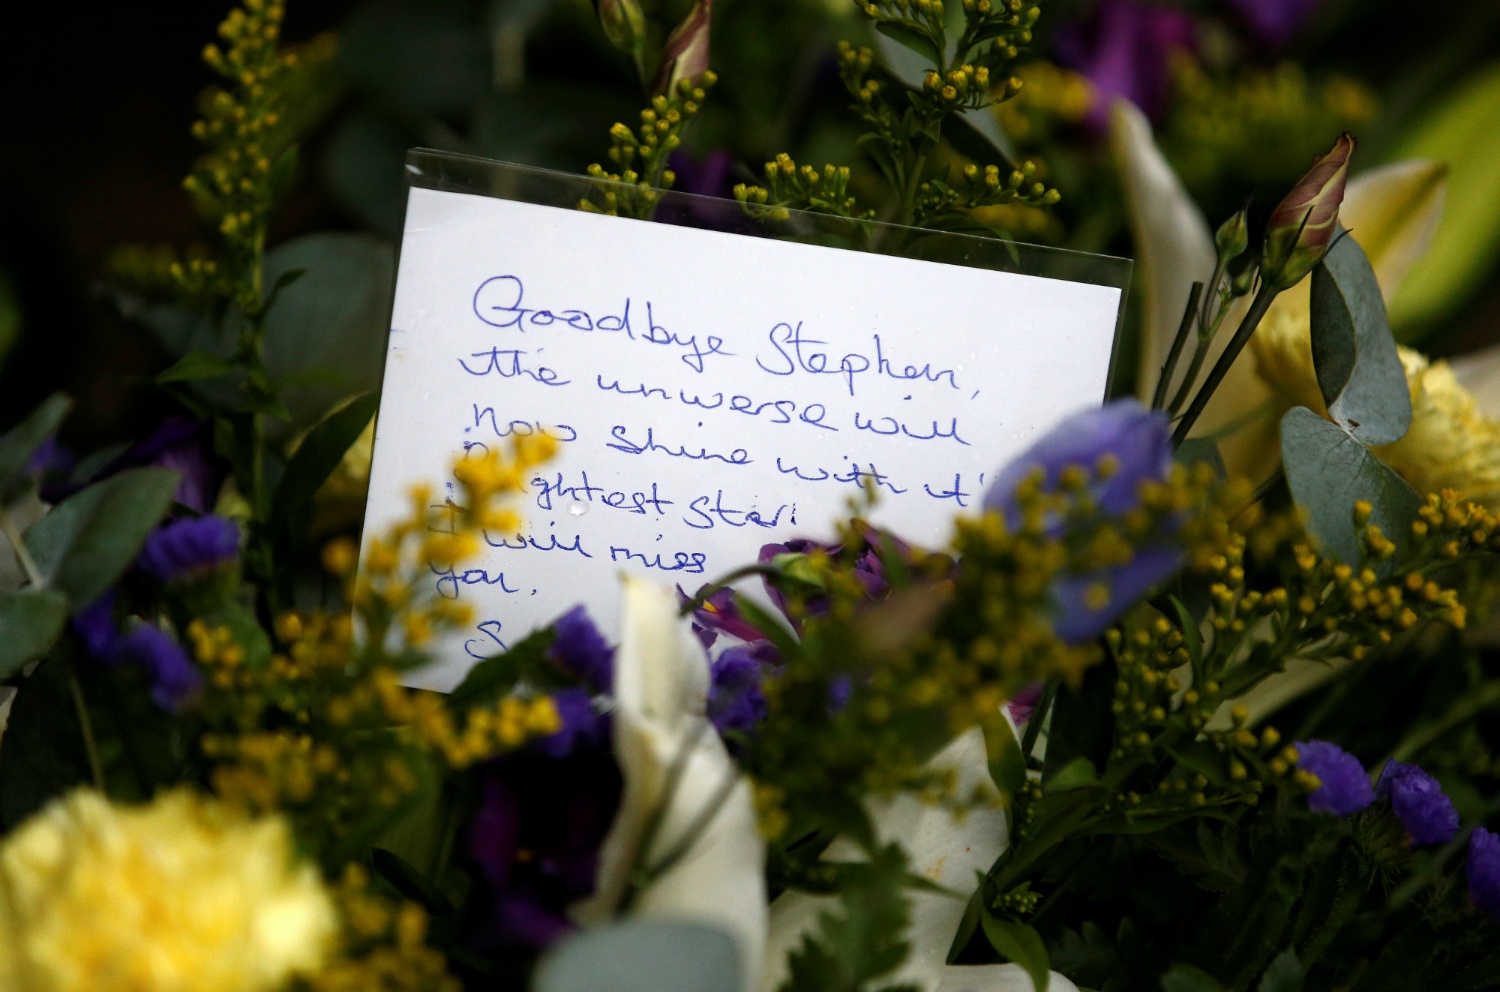 Goodbye Stephen,
the universe will
now shine with it'
ghtest star!
I will miss
you,
S